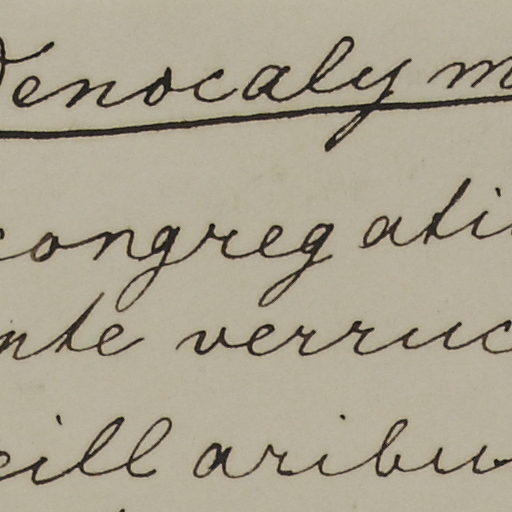 Denocalym
congregati
nte verruc
cillaribu